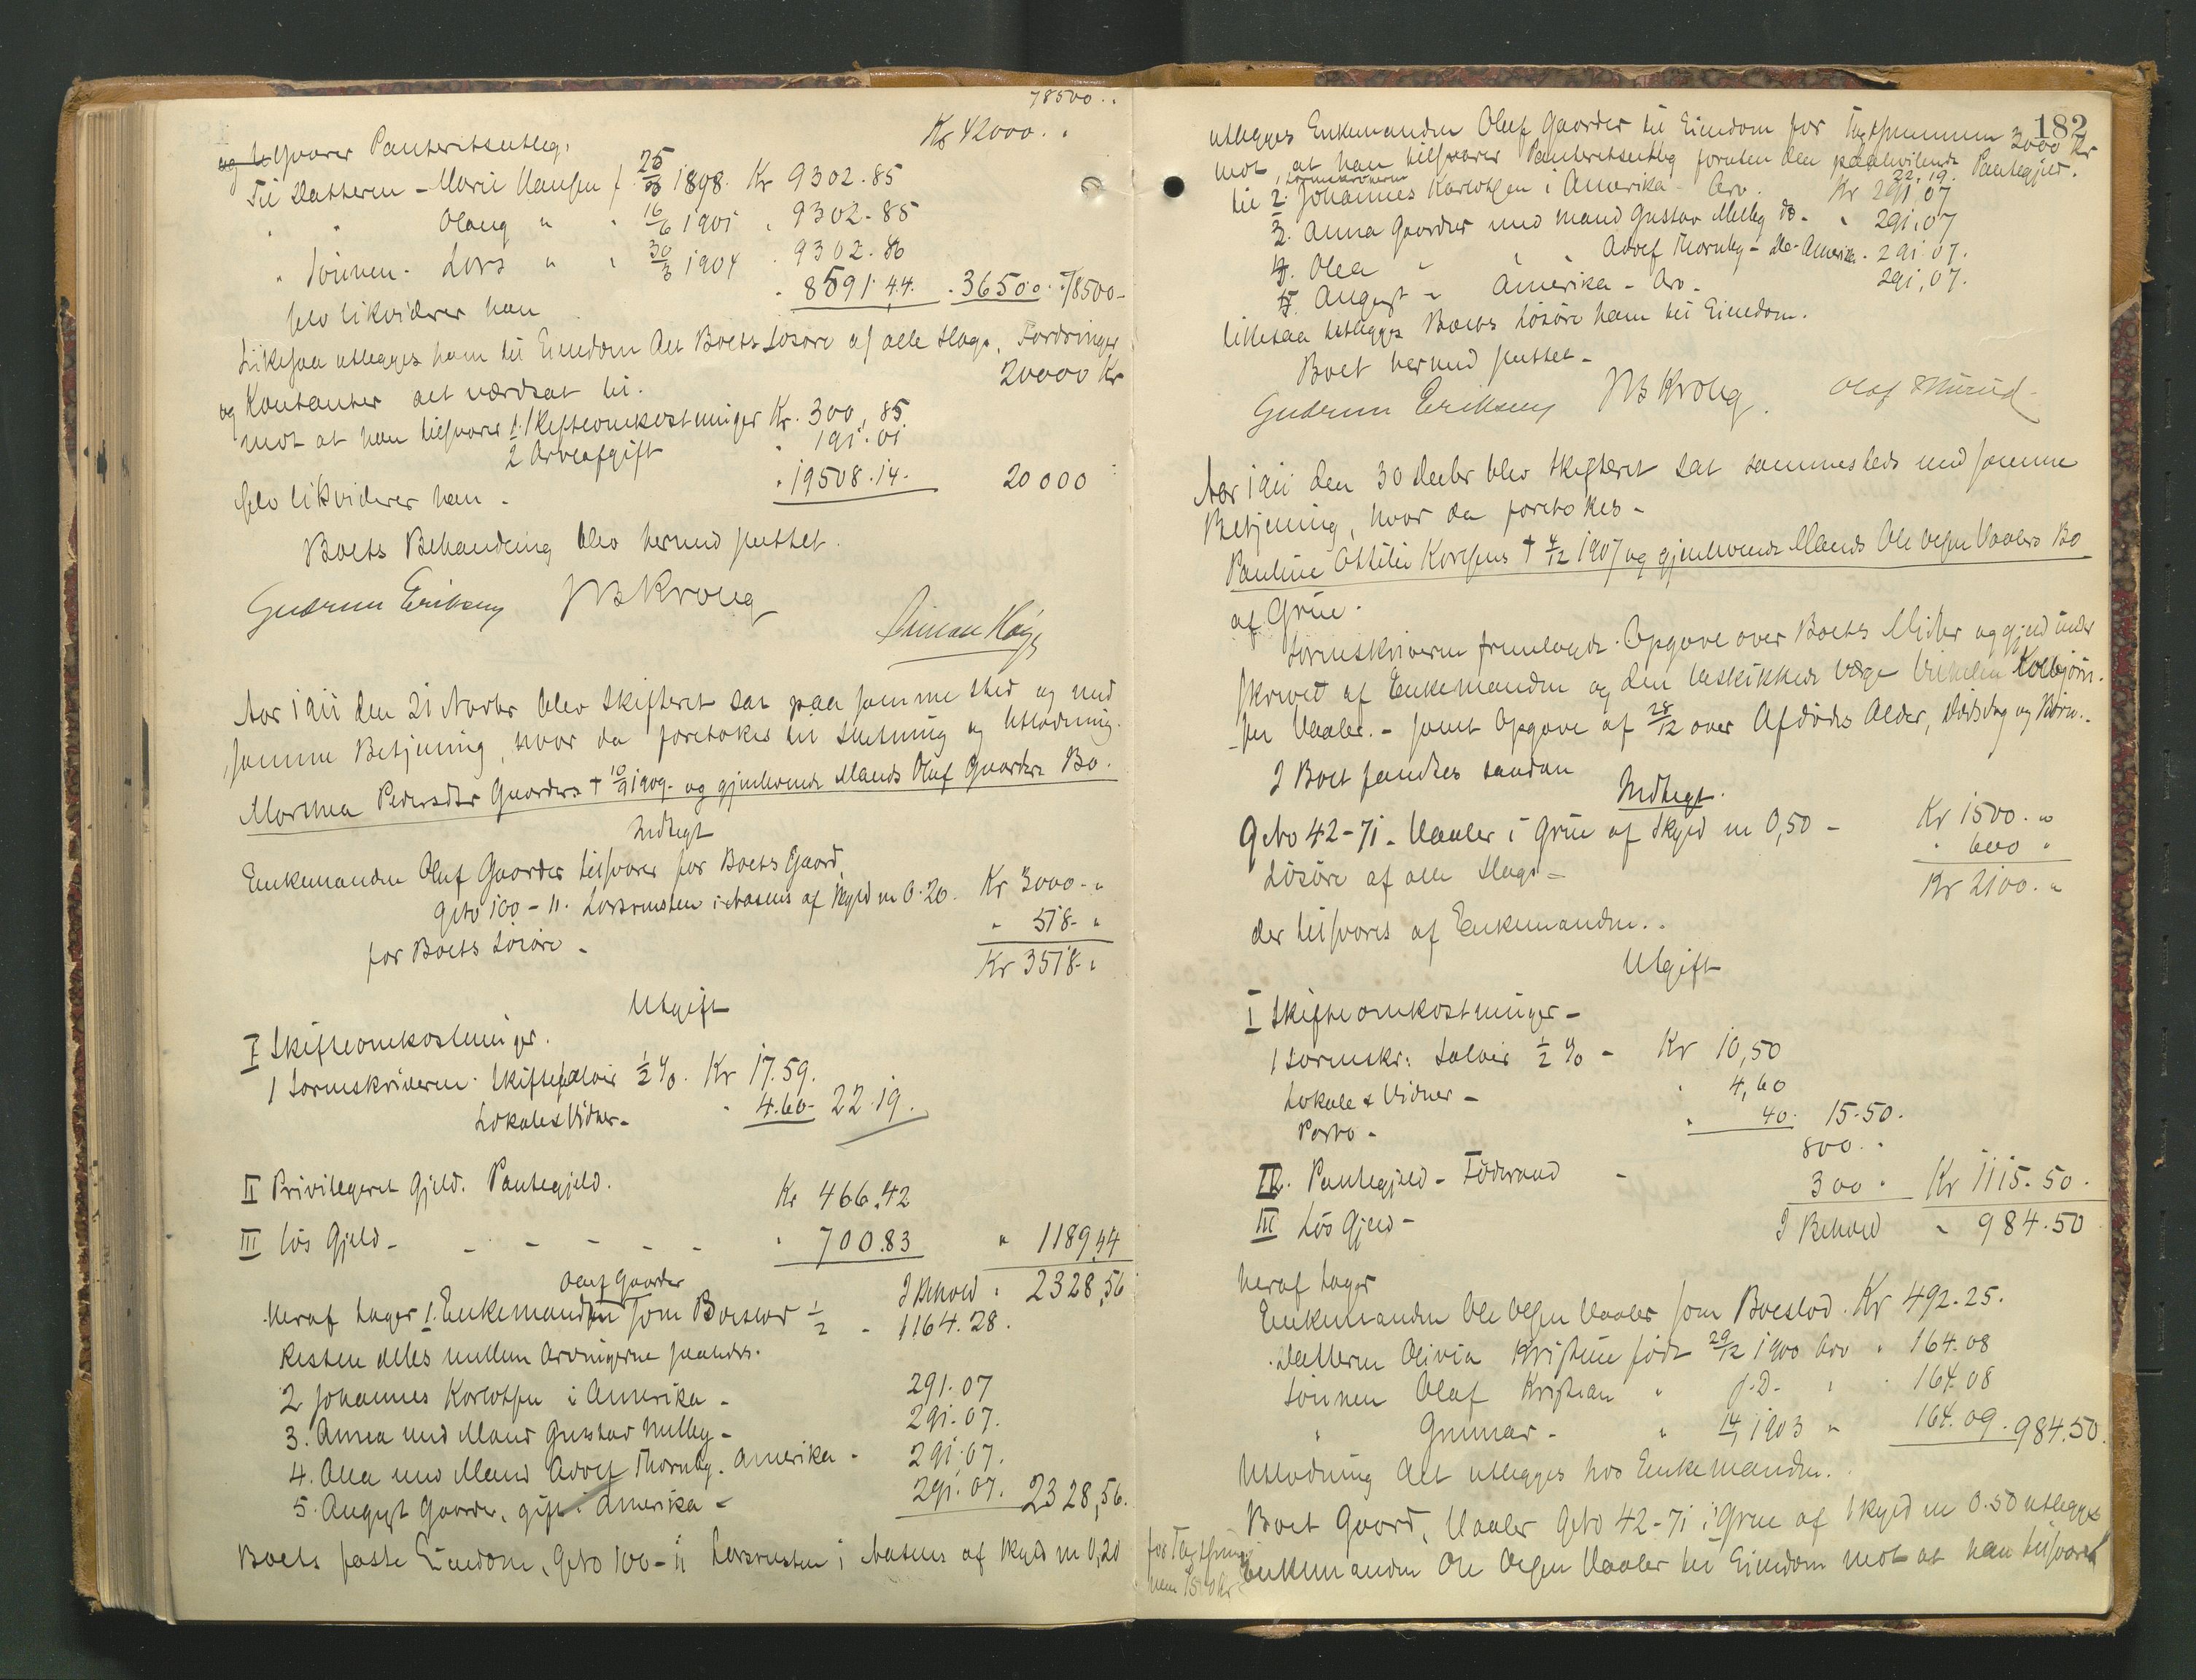 78500..
Kr 42000..
svarer Panteretsutlæg.
Til Datteren - Marie Hansen f. 25/ 1898. Kr 9302.85
" " Olaug " " 16/6 1901 " 9302.85
" Sønnen - Lars " " 30/3 1904 " 9302.86
selv likviderer han " 8591.44. " 36500.. 78500-
Likesaa utlægges ham til Eiendom Alt Boets Løsøre af alle Slags, Fordringer
og Kontanter alt værdsat til. 20000 Kr
mot at han tilsvarer 1. Skifteomkostninger Kr. 300,85
2 Arveafgift " 191.01
selv likviderer han - " 19508.14. 20000
Boets Behandling blev hermed sluttet.
Gudrun Eriksen JB Krong
Simen
Aar 1911 den 21 Novbr blev Skifteret sat paa samme Sted og med
samme Betjening, hvor da foretokes til Slutning og Utlodning.
Marthea Pedersdtr Gaarders † 10/9 1909 - og gjenlevende Mands Oluf Gaarders Bo.
Indtægt
Enkemanden Oluf Gaarder tilsvarer for Boets Gaard,
Gno 100-11. i Aasnes af Skyld m 0.20. Kr 3000-"
for Boets Løsøre - " 518-"
Kr 3518-"
Utgift
I Skifteomkostninger.
1 Sorenskriveren. Skiftesalair ½ %. Kr 17.59.
Lokale & Vidner - " 4.60- 22.19.
II Privilegeret Gjeld. Pantegjeld. Kr 466.42
III Løs Gjeld - - - - - - " 700.83 " 1189.44
I Behold " 2328,56
Oluf Gaarder
Heraf tager 1. Enkemanden som Boeslod ½ - 1164.28.
Resten deles mellem Arvingerne saaledes.
2 Johannes Karlotsen i Amerika - 291.07
3. Anna med Mand Gustav Melby - 291.07.
4. Olea med Mand Adolf Thornby. Amerika - 291.07.
5. August Gaarder, gift i Amerika - 291.07. 2328,56.
Boets faste Eiendom, Gno 100-11 i Aasnes af Skyld m 0,20
182
utlægges Enkemanden Oluf Gaarder til Eiendom for Taxtsummen 3000 Kr
mot, at han tilsvarer Panteretsutlæg foruten den paahvilende Pantegjeld.
Sorenskriveren 22.19.
til 2. Johannes Karlotsen i Amerika - Arv. Kr 291,07
3. Anna Gaarder med Mand Gustav Melby do - " 291,07
4. Olea " " " Adolf Thornby - do - Amerika. 291.07.
5. August " Amerika - Arv - 291,07.
likesaa utlægges Boets Løsøre ham til Eiendom.
Boet hermed sluttet -
Gudrun Eriksen JB Krong. Olaf
Aar 1911 den 30 Decbr blev Skifteret sat sammesteds med samme
Betjening, hvor da foretokes -
Pauline Ottilie Karlsens † 4/12 1907 og gjenlevende Mands Ole Olsen Vaalers Bo
af Grue.
Sorenskriveren fremlagde Opgave over Boets Midler og Gjeld under
skrevet af Enkemanden og den beskikkede Værge Kolbjørn-
sen Vaaler. - samt Opgave af 28/12 over Afdødes Alder, Dødsdag og Børn..
I Boet fandtes saadan
Indtægt.
Gno 42-71 - Vaaler i Grue af Skyld m 0,50 - Kr 1500. "
Løsøre af alle Slags - " 600 "
Kr 2100. "
der tilsvares af Enkemanden..
Utgift
I Skifteomkostninger -
1 Sorenskr: Salair ½ % - Kr 10,50
Lokale & Vidner - " 4,60
Porto - " 40. 15.50.
II. Pantegjeld - Føderaad - 800..
III Løs Gjeld - 300. Kr 1115.50.
I Behold " 984.50
Heraf tager
Enkemanden Ole Olsen Vaaler som Boeslod. Kr 492.25.
Datteren Olivia Kristine født 29/12 1900 Arv " 164.08
Sønnen Olaf Kristian " s.D. " " 164.08
" Gunnar - " 14/1 1903 " 164.09. 984.50.
Utlodning Alt utlægges hos Enkemanden..
Boet Gaard, Vaaler Gno 42-71 i Grue af Skyld m 0.50 utlægges
for Taxtsummen 1500 Kr
Enkemanden Ole Olsen Vaaler til Eiendom mot at han tilsvarer